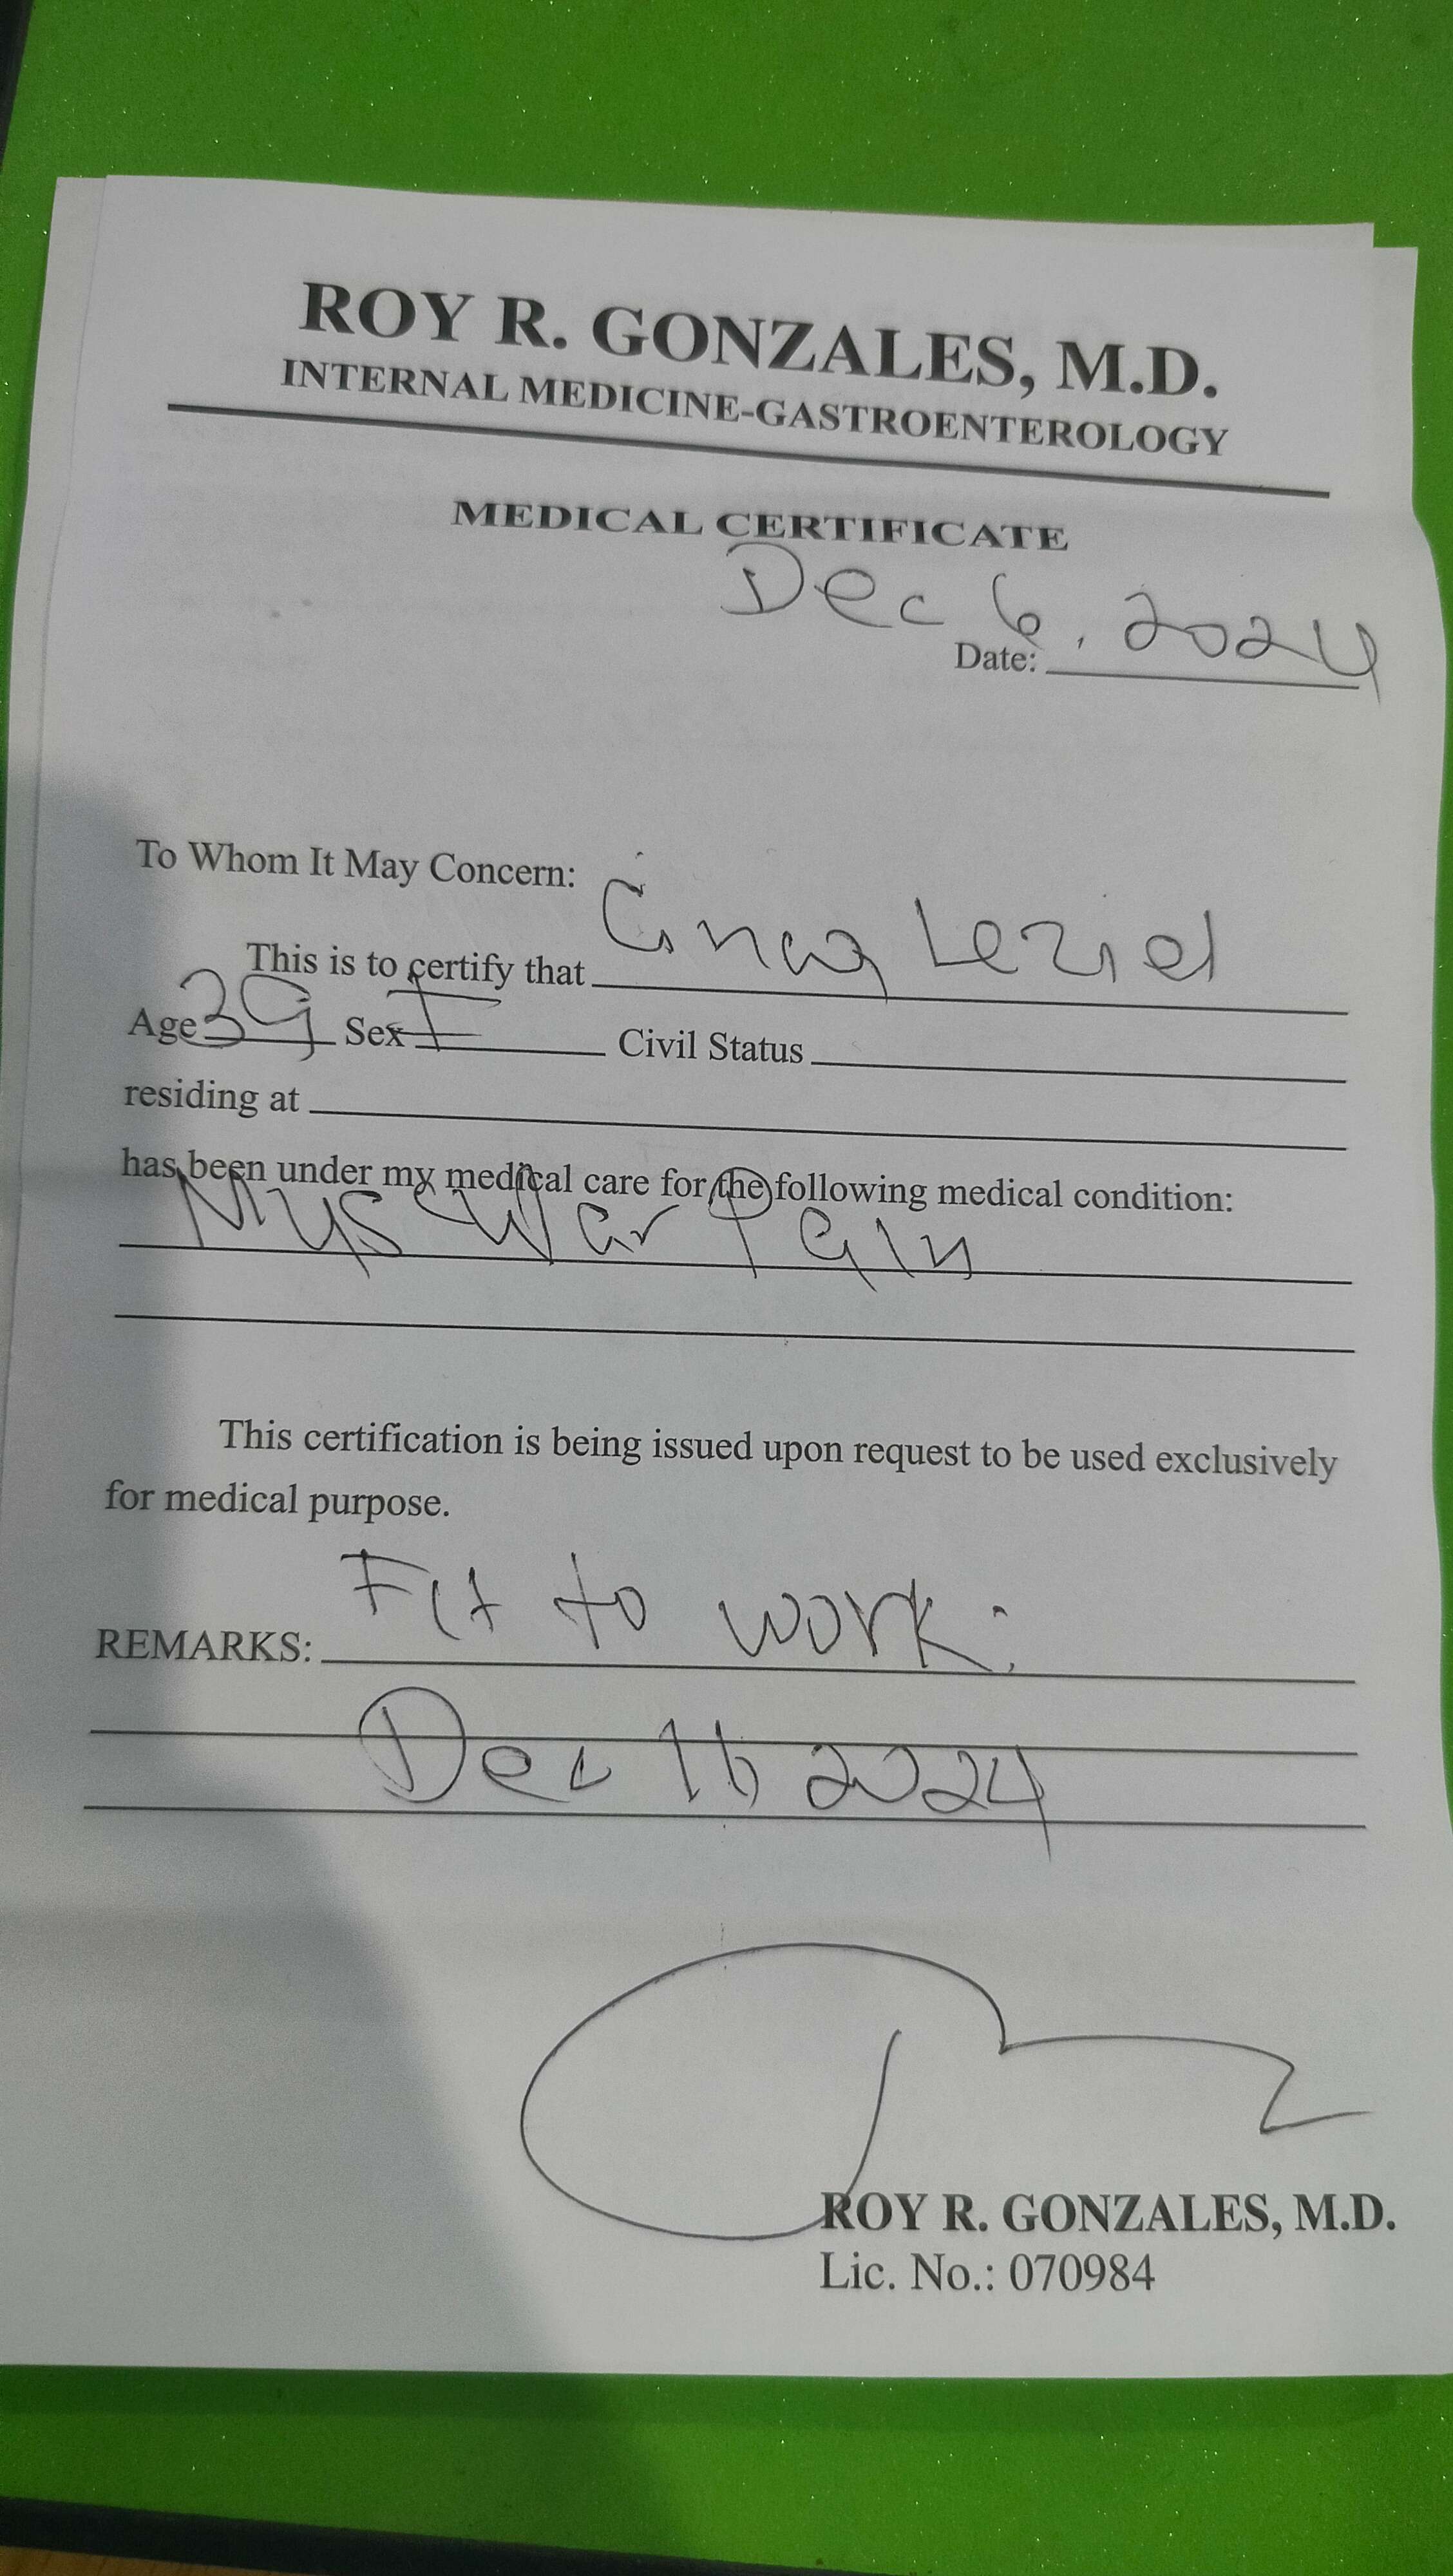 ROY R. GONZALES, M.D.
INTERNAL MEDICINE-GASTROENTEROLOGY
MEDICAL CERTIFICATE
Date: Dec 6, 2024
To Whom It May Concern:
This is to certify that
Age 39 Sex F Civil Status
residing at
has been under my medical care for the following medical condition:
Pain
This certification is being issued upon request to be used exclusively
for medical purpose.
REMARKS: Fit to work:
Dec 16 2024
ROY R. GONZALES, M.D.
Lic. No.: 070984